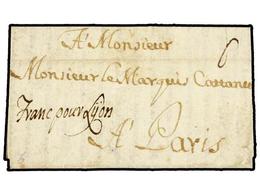 A Monsieur
6
Monsieur le Marquis Cattaneo
Franc pour Lyon
A Paris